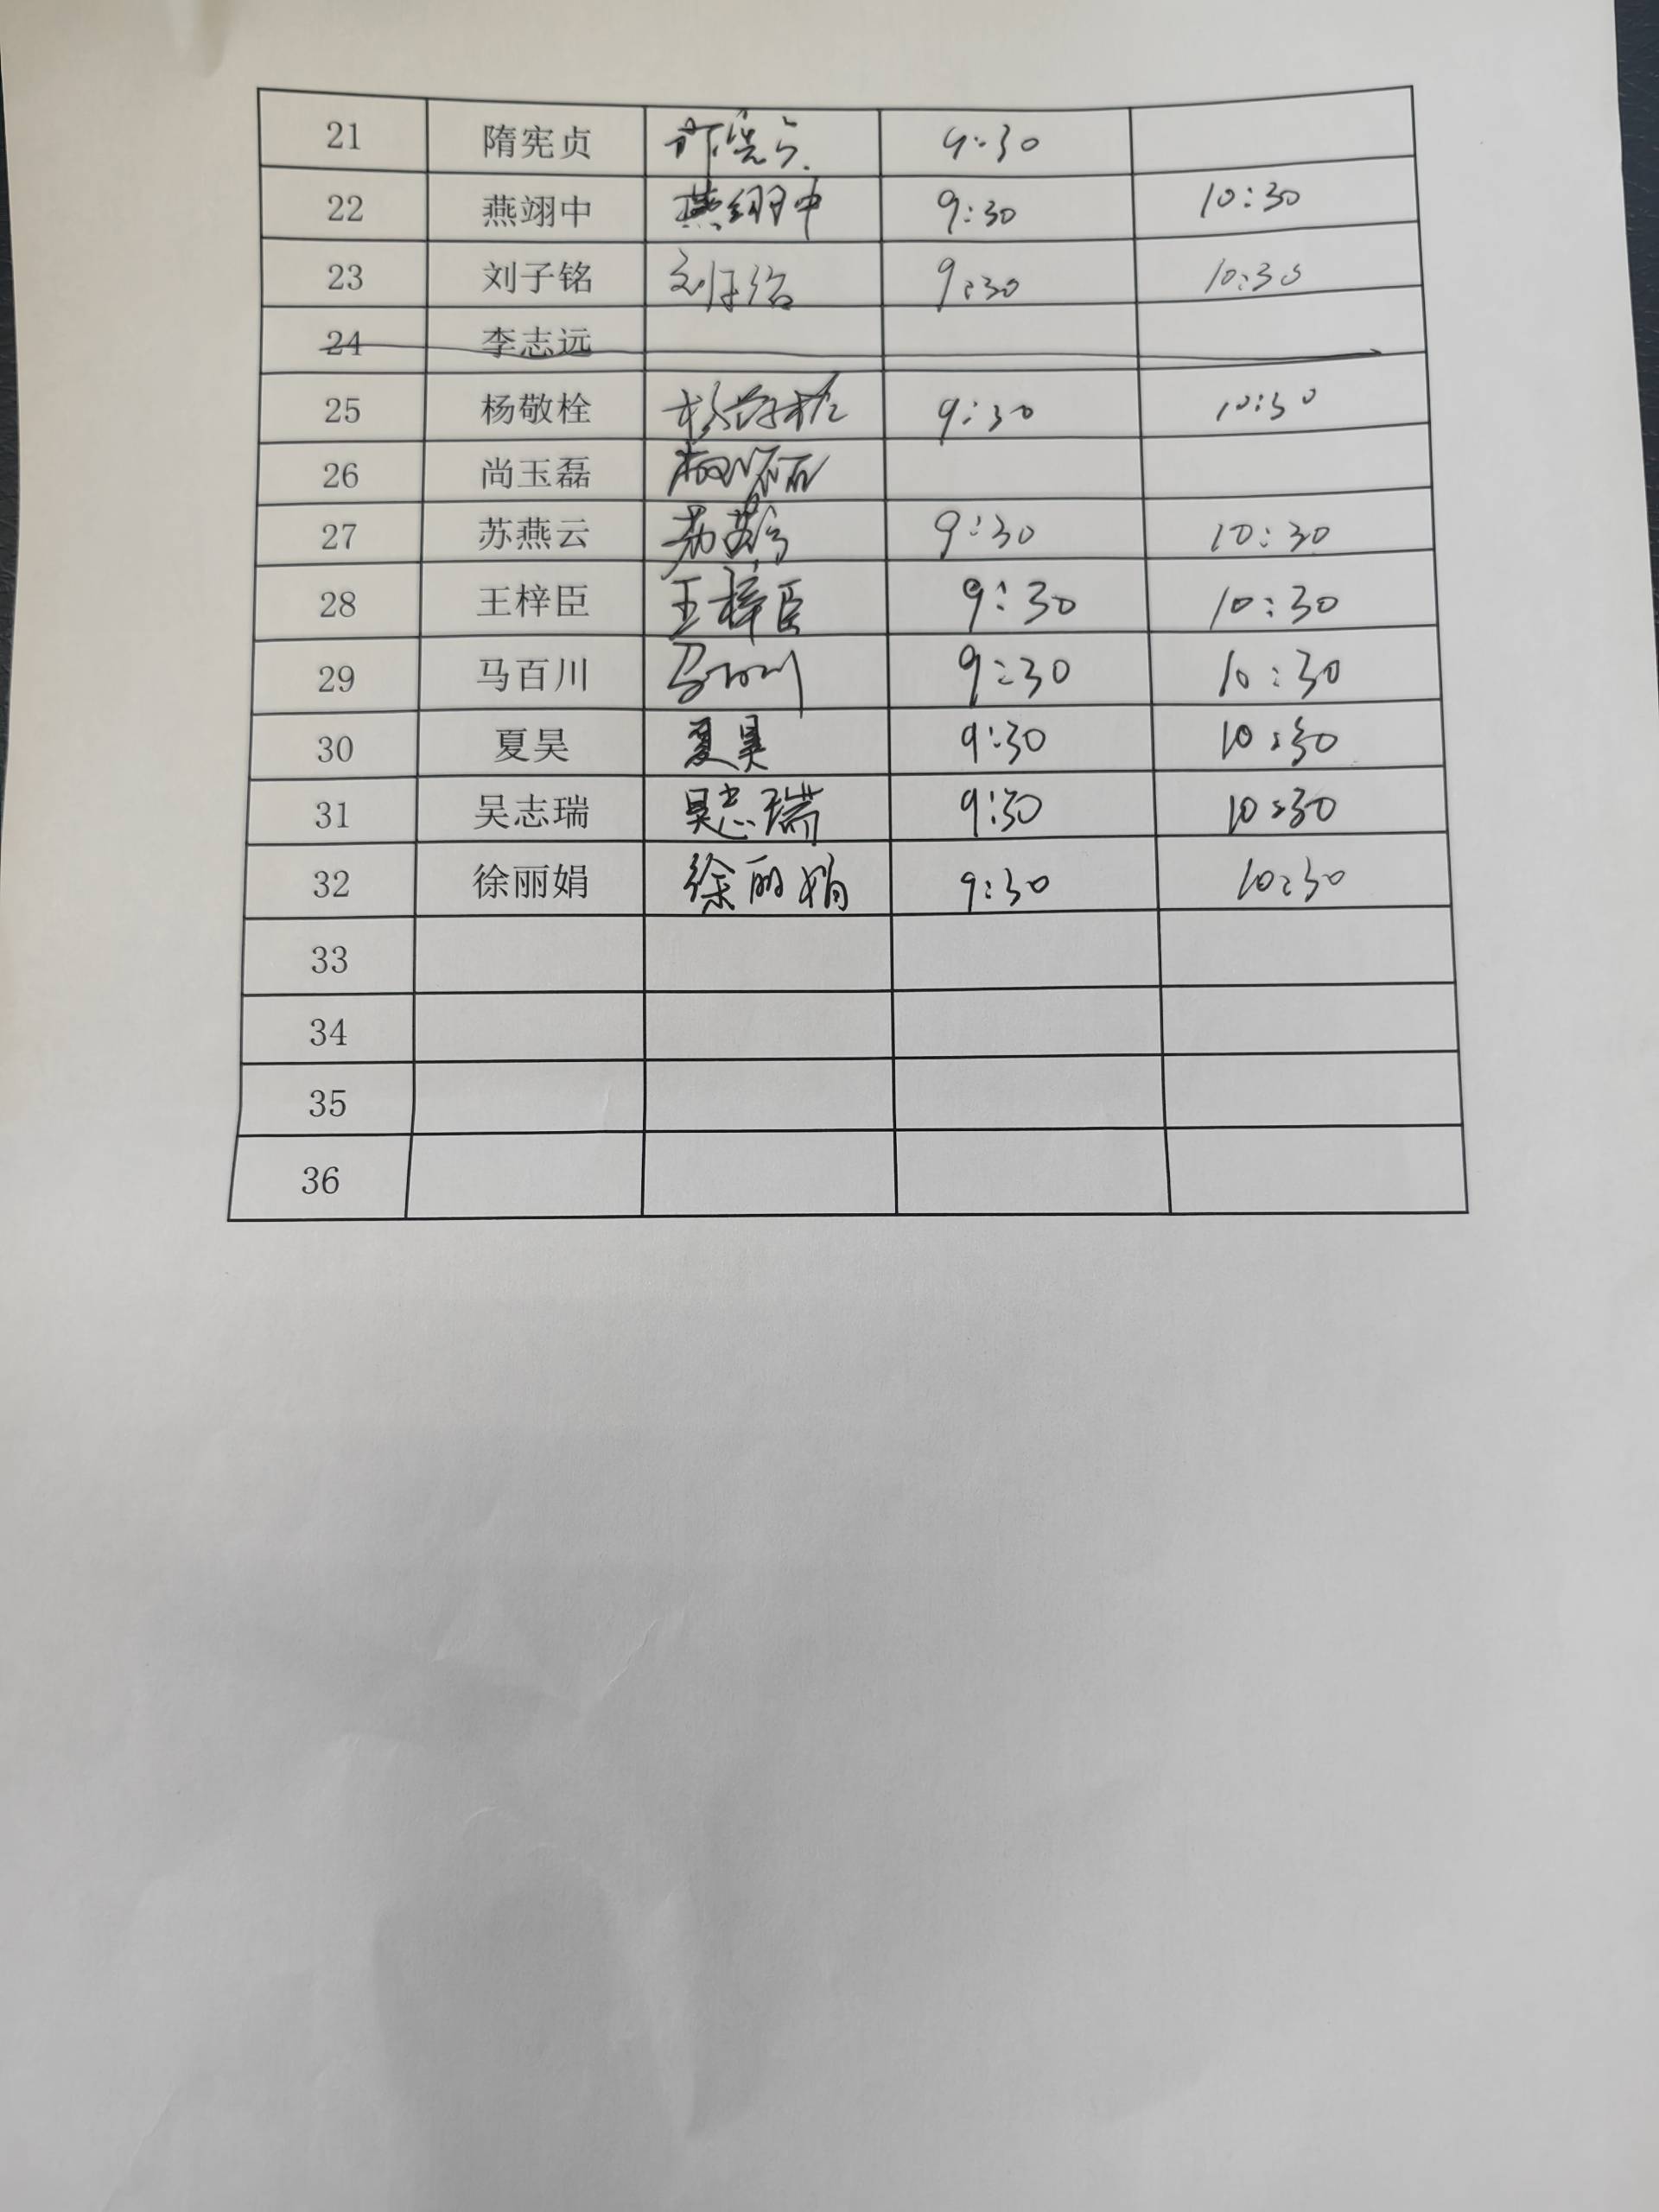 21 隋宪贞 9:30
22 燕翊中 燕翊中 9:30 10:30
23 刘子铭 刘子铭 9:30 10:30
24 李志远
25 杨敬栓 杨敬栓 9:30 10:30
26 尚玉磊
27 苏燕云 苏燕云 9:30 10:30
28 王梓臣 王梓臣 9:30 10:30
29 马百川 马百川 9:30 10:30
30 夏昊 夏昊 9:30 10:30
31 吴志瑞 吴志瑞 9:30 10:30
32 徐丽娟 徐丽娟 9:30 10:30
33
34
35
36